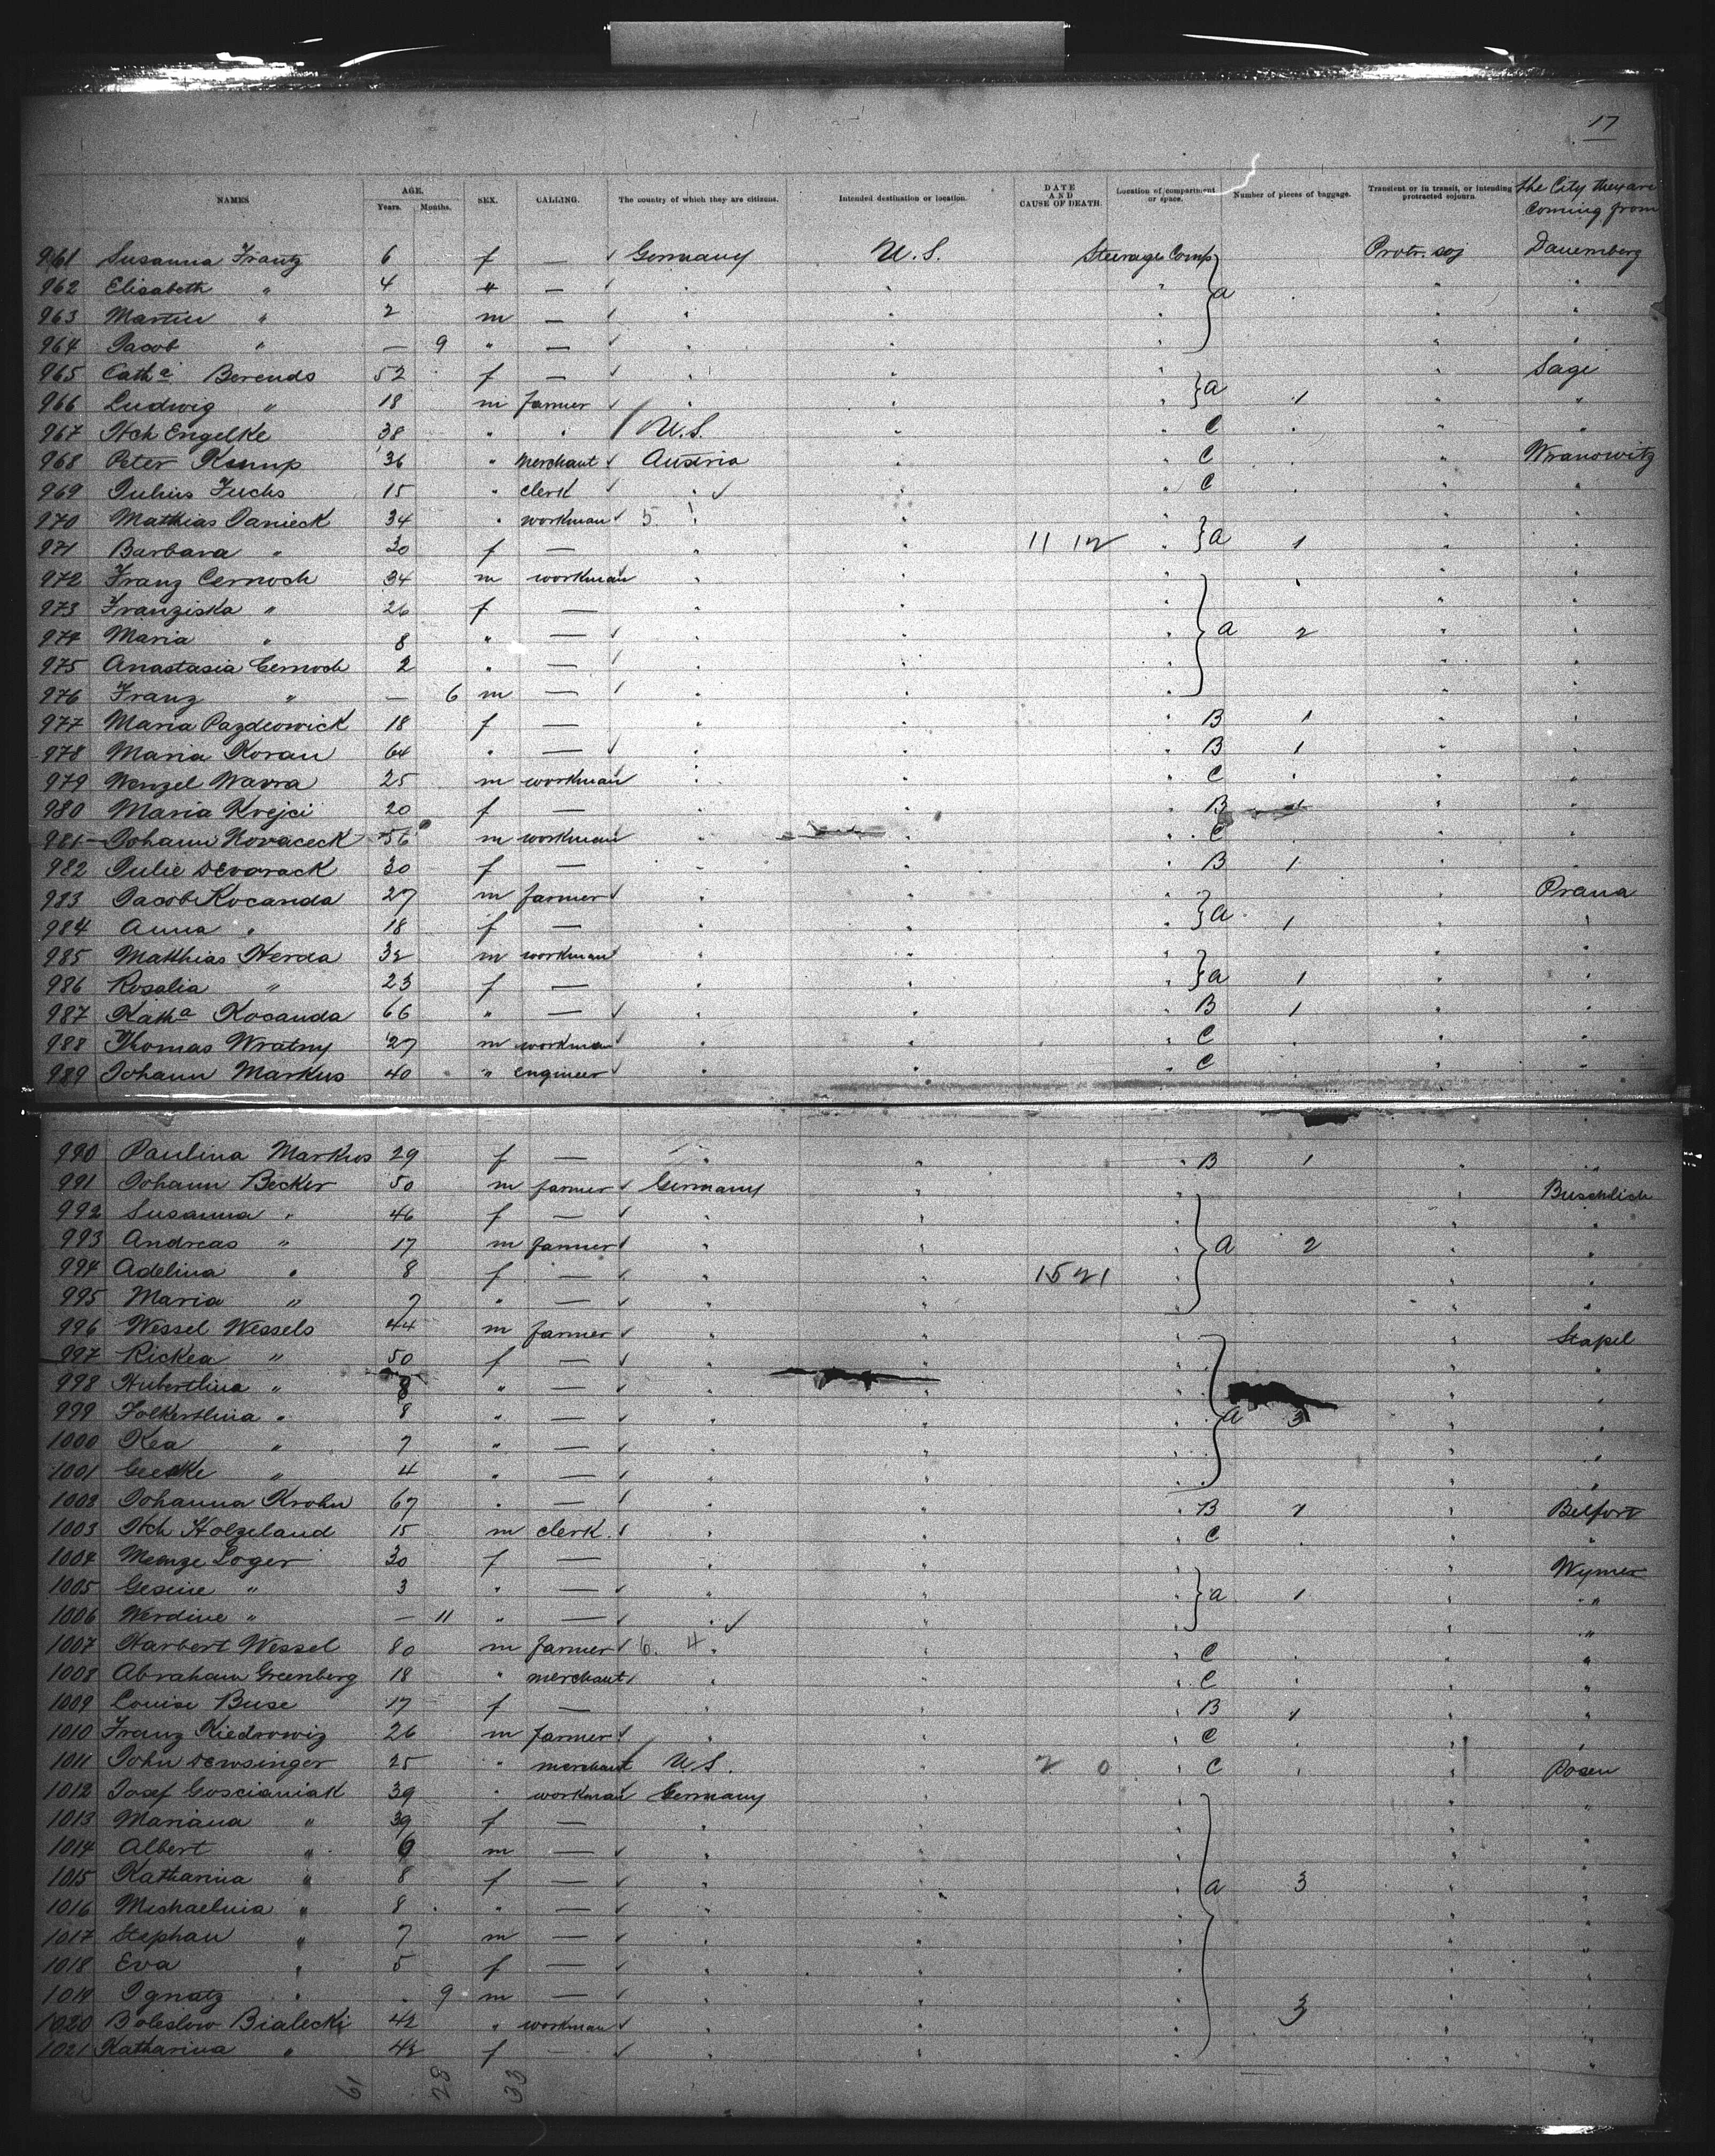 17
NAMES AGE. Years. Months. SEX. CALLING. The country of which they are citizens. Intended destination or location. DATE AND CAUSE OF DEATH. Location of compartment or space. Number of pieces of baggage. Transient or in transit, or intending protracted sojourn. the City they are coming from
961 Susanna Frantz 6 f — Germany U.S. Steerage Comp Protr. soj Dauemberg
962 Elisabeth " 4 " — a
963 Martin " 2 m —
964 Jacob " — 9 " —
965 Cathe Berends 52 f — Sage
966 Ludwig " 18 m farmer a 1 "
967 Hch Engelke 38 " " U.S. C
968 Peter Kump 36 " merchant Austria C Wranowitz
969 Julius Fuchs 15 " clerk C "
970 Mathias Janieck 34 " workman 5
971 Barbara " 30 f — 11 12 a 1
972 Franz Cernoch 34 m workman
973 Franziska " 26 f —
974 Maria " 8 " — a 2
975 Anastasia Cernoch 2 " —
976 Franz " — 6 m —
977 Maria Pazdeowick 18 f — B 1
978 Maria Koran 64 " — B 1
979 Wenzel Wavra 25 m workman C
980 Maria Krejci 20 f — B 1
981 Johann Novaceck 56 m workman C
982 Julie Dworack 30 f — B 1
983 Jacob Kocanda 27 m farmer Prana
984 Anna " 18 f — a 1
985 Matthias Herda 32 m workman
986 Rosalia " 23 f — a 1
987 Katha Kocanda 66 " — B 1
988 Thomas Wratny 27 m workman C
989 Johann Markus 40 " engineer C
990 Paulina Markus 29 f — B 1
991 Johann Becker 50 m farmer Germany Buschlich
992 Susanna " 46 f —
993 Andreas " 17 m farmer a 2
994 Adelina " 8 f — 15 21
995 Maria " 7 " —
996 Wessel Wessels 44 m farmer Stapel
997 Rickea " 50 f —
998 Hubertlina " 8 " —
999 Folkertlina " 8 " — a 3
1000 Kea " 7 " —
1001 Geeske " 4 " —
1002 Johanna Krohn 67 " — B 1 Belfort
1003 Hch Holzeland 15 m clerk C
1004 Menze Loger 30 f — Wymer
1005 Gesine " 3 " — a 1 "
1006 Werdine " — 11 " — "
1007 Harbert Wessel 80 m farmer 6 4 C "
1008 Abraham Greenberg 18 " merchant C "
1009 Louise Buse 17 f — B 1 "
1010 Franz Kiedrowiz 26 m farmer C
1011 John Dewsinger 25 " merchant U.S. 2 0 C Posen
1012 Josef Goscianiak 39 " workman Germany "
1013 Mariana " 39 f —
1014 Albert " 9 m —
1015 Katharina " 8 f — a 3
1016 Michaelina " 8 " —
1017 Stephan " 7 m —
1018 Eva " 5 f —
1019 Ignatz " 9 m —
1020 Boleslow Bialecki 42 " workman 3
1021 Katharina " 42 f —
61 28 33